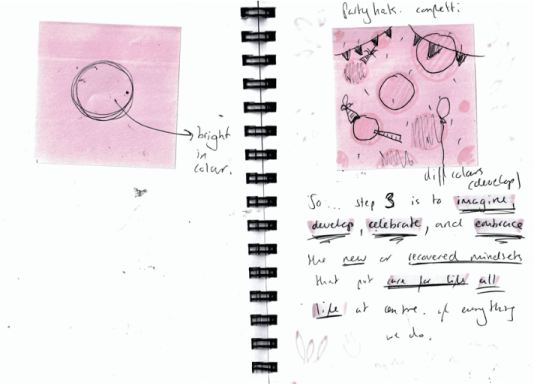 bright
in
colour.
party hats. confetti
diff colours
(develop)
So... step 3 is to imagine,
develop, celebrate, and embrace
the new or recovered mindsets
that put care for life all
life at centre. of everything
we do.